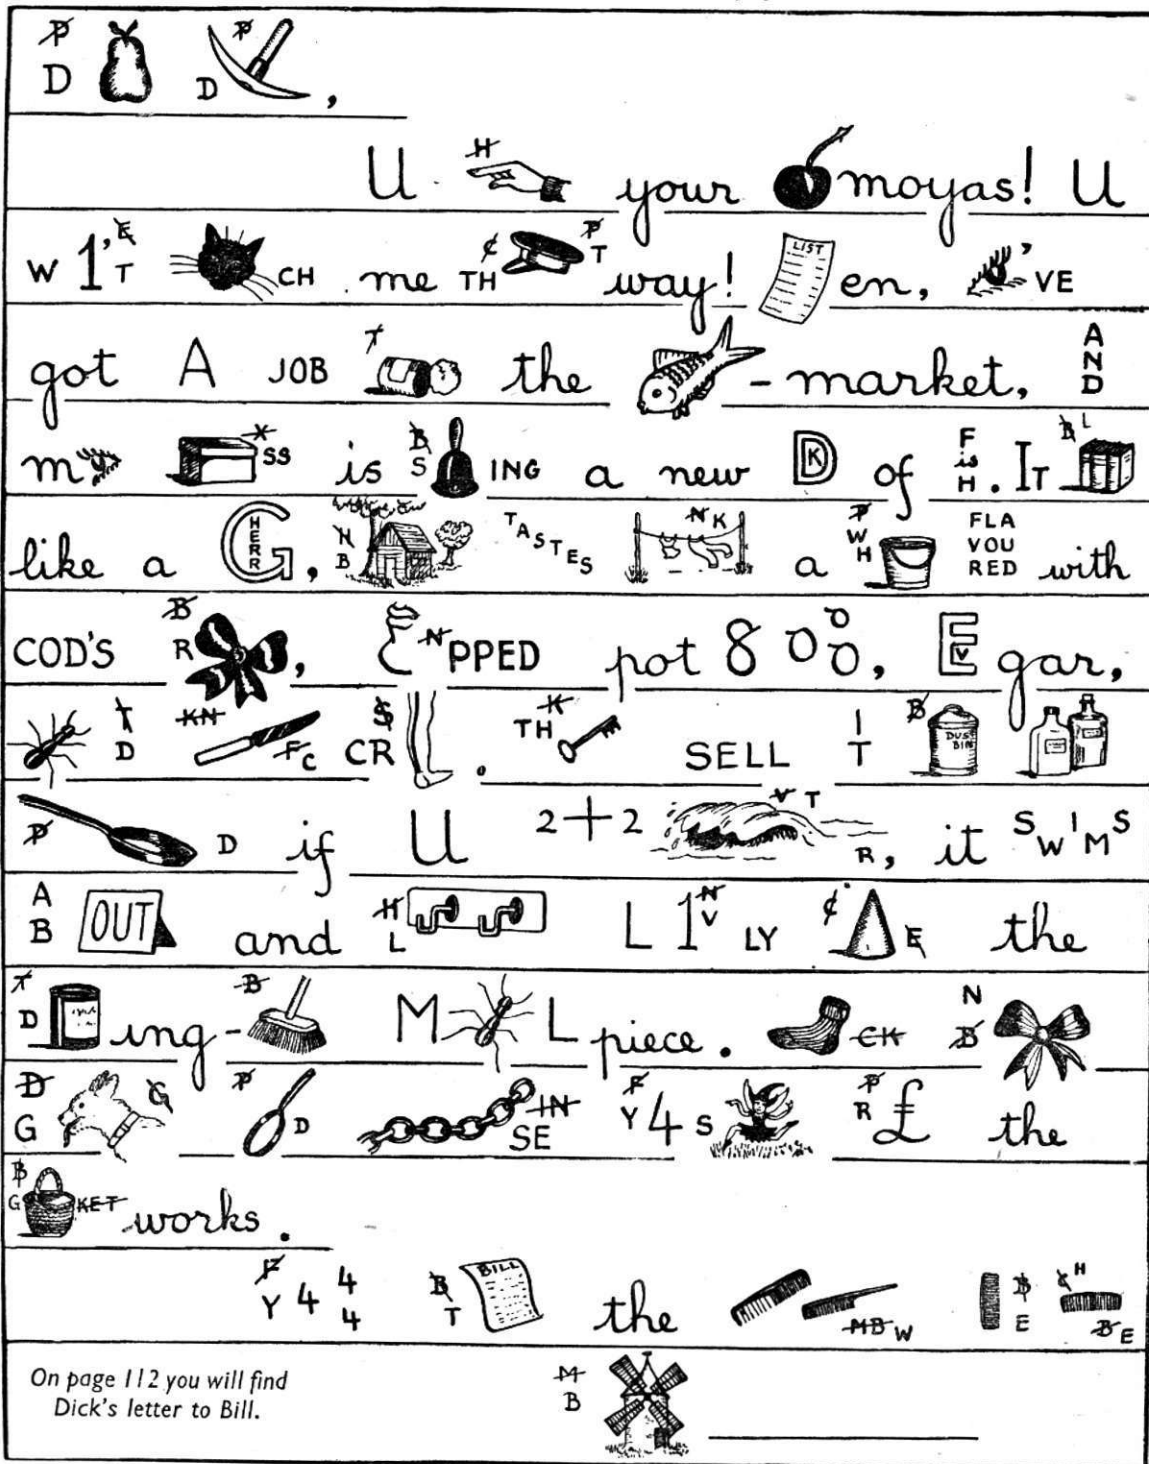 P D P D ,
U H your moyas! U
W 1 'E T CH me TH C P T way! LIST en, 'VE
got A JOB T the - market, AND
m X SS is B S ING a new D K of FisH. IT B L
like a G HERR, H B TASTES N K a P W H FLAVOURED with
COD'S B R, N PPED pot 8 000, E V gar,
T D KN F C CR S. TH K SELL IT B DUST BIN
P D if U 2+2 V T R, it SWIMS
AB OUT and H L L 1 N V LY C E the
T D ing- B M L piece. CK N B
D G G P D IN SE F Y 4 S P R £ the
B G KET works.
F Y 4 4 4 B T BILL the MB W B E C H B E
On page 112 you will find
Dick's letter to Bill.
M B